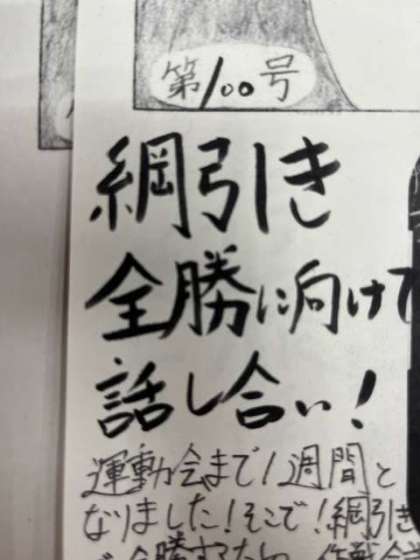 第100号
綱引き
全勝に向けて
話し合い!
運動会まで1週間と
なりました!そこで!綱引き